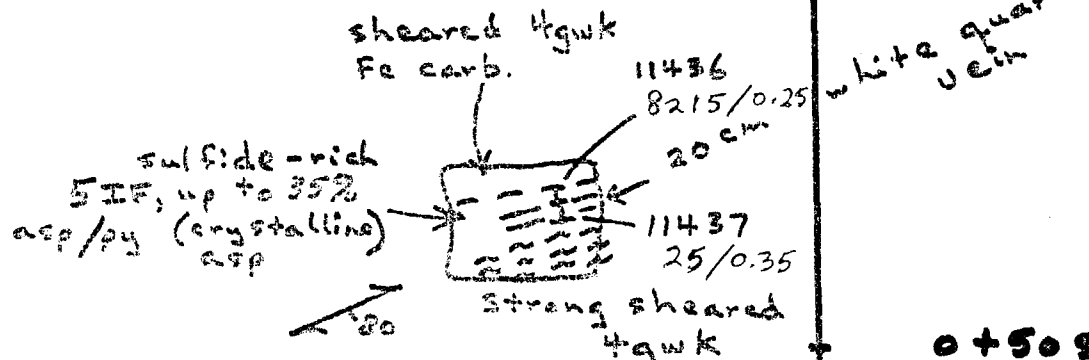 sheared 4gwk
Fe carb.
11436
8215/0.25
white
vein
20 cm
sulfide-rich
5IF, up to 35%
asp/py (crystalline)
asp
11437
25/0.35
80
strong sheared
4gwk
0+50